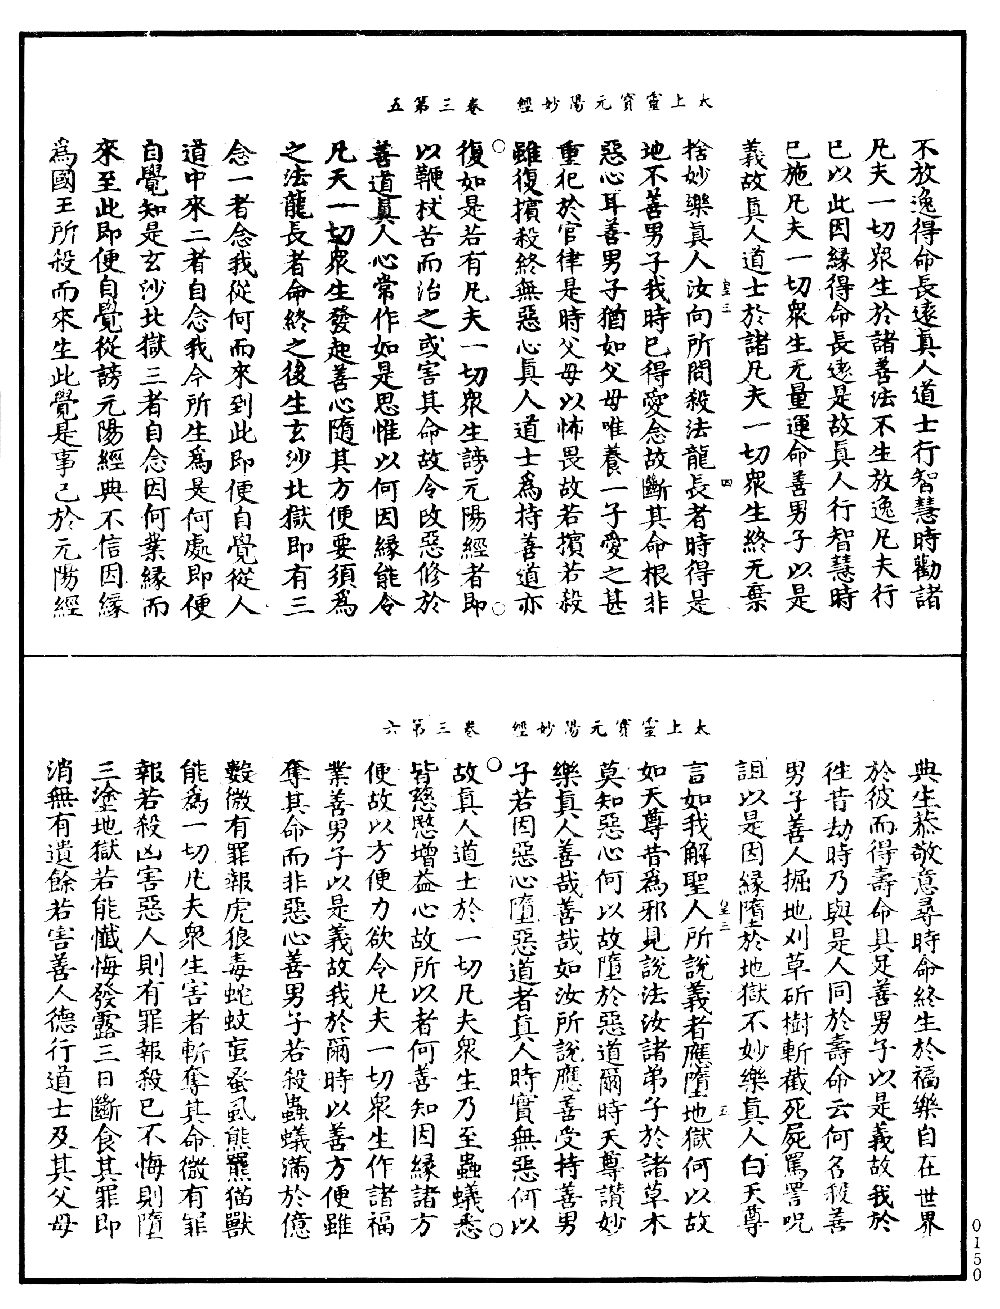 太上靈寶元陽妙經　卷三第五
不放逸得命長遠真人道士行智慧時勸諸
凡夫一切眾生於諸善法不生放逸凡夫行
已以此因緣得命長遠是故真人行智慧時
已施凡夫一切眾生无量運命善男子以是
義故真人道士於諸凡夫一切眾生終无棄
皇三　四
捨妙樂真人汝向所問殺法龍長者時得是
地不善男子我時已得愛念故斷其命根非
惡心耳善男子猶如父母唯養一子愛之甚
重犯於官律是時父母以怖畏故若擯若殺
雖復擯殺終無惡心真人道士為持善道亦
復如是若有凡夫一切眾生謗元陽經者即
以鞭杖苦而治之或害其命故令改惡修於
善道真人心常作如是思惟以何因緣能令
凡天一切眾生發起善心隨其方便要須為
之法龍長者命終之後生玄沙北獄即有三
念一者念我從何而來到此即便自覺從人
道中來二者自念我今所生為是何處即便
自覺知是玄沙北獄三者自念因何業緣而
來至此即便自覺從謗元陽經典不信因緣
為國王所殺而來生此覺是事已於元陽經
太上靈寶元陽妙經　卷三第六
典生恭敬意尋時命終生於福樂自在世界
於彼而得壽命具足善男子以是義故我於
往昔劫時乃與是人同於壽命云何名殺善
男子善人掘地刈草斫樹斬截死屍罵詈呪
詛以是因緣墮於地獄不妙樂真人白天尊
皇三　五
言如我解聖人所說義者應墮地獄何以故
如天尊昔為邪見說法汝諸弟子於諸草木
莫知惡心何以故墮於惡道爾時天尊讚妙
樂真人善哉善哉如汝所說應善受持善男
子若因惡心墮惡道者真人時實無惡何以
故真人道士於一切凡夫眾生乃至蟲蟻悉
皆慈愍增益心故所以者何善知因緣諸方
便故以方便力欲令凡夫一切眾生作諸福
業善男子以是義故我於爾時以善方便雖
奪其命而非惡心善男子若殺蟲蟻滿於億
數微有罪報虎狼毒蛇蚊䖟蚤虱熊羆猫獸
能為一切凡夫眾生害者斬奪其命微有罪
報若殺凶害惡人則有罪報殺已不悔則墮
三塗地獄若能懺悔發露三日斷食其罪即
消無有遺餘若害善人德行道士及其父母
0150